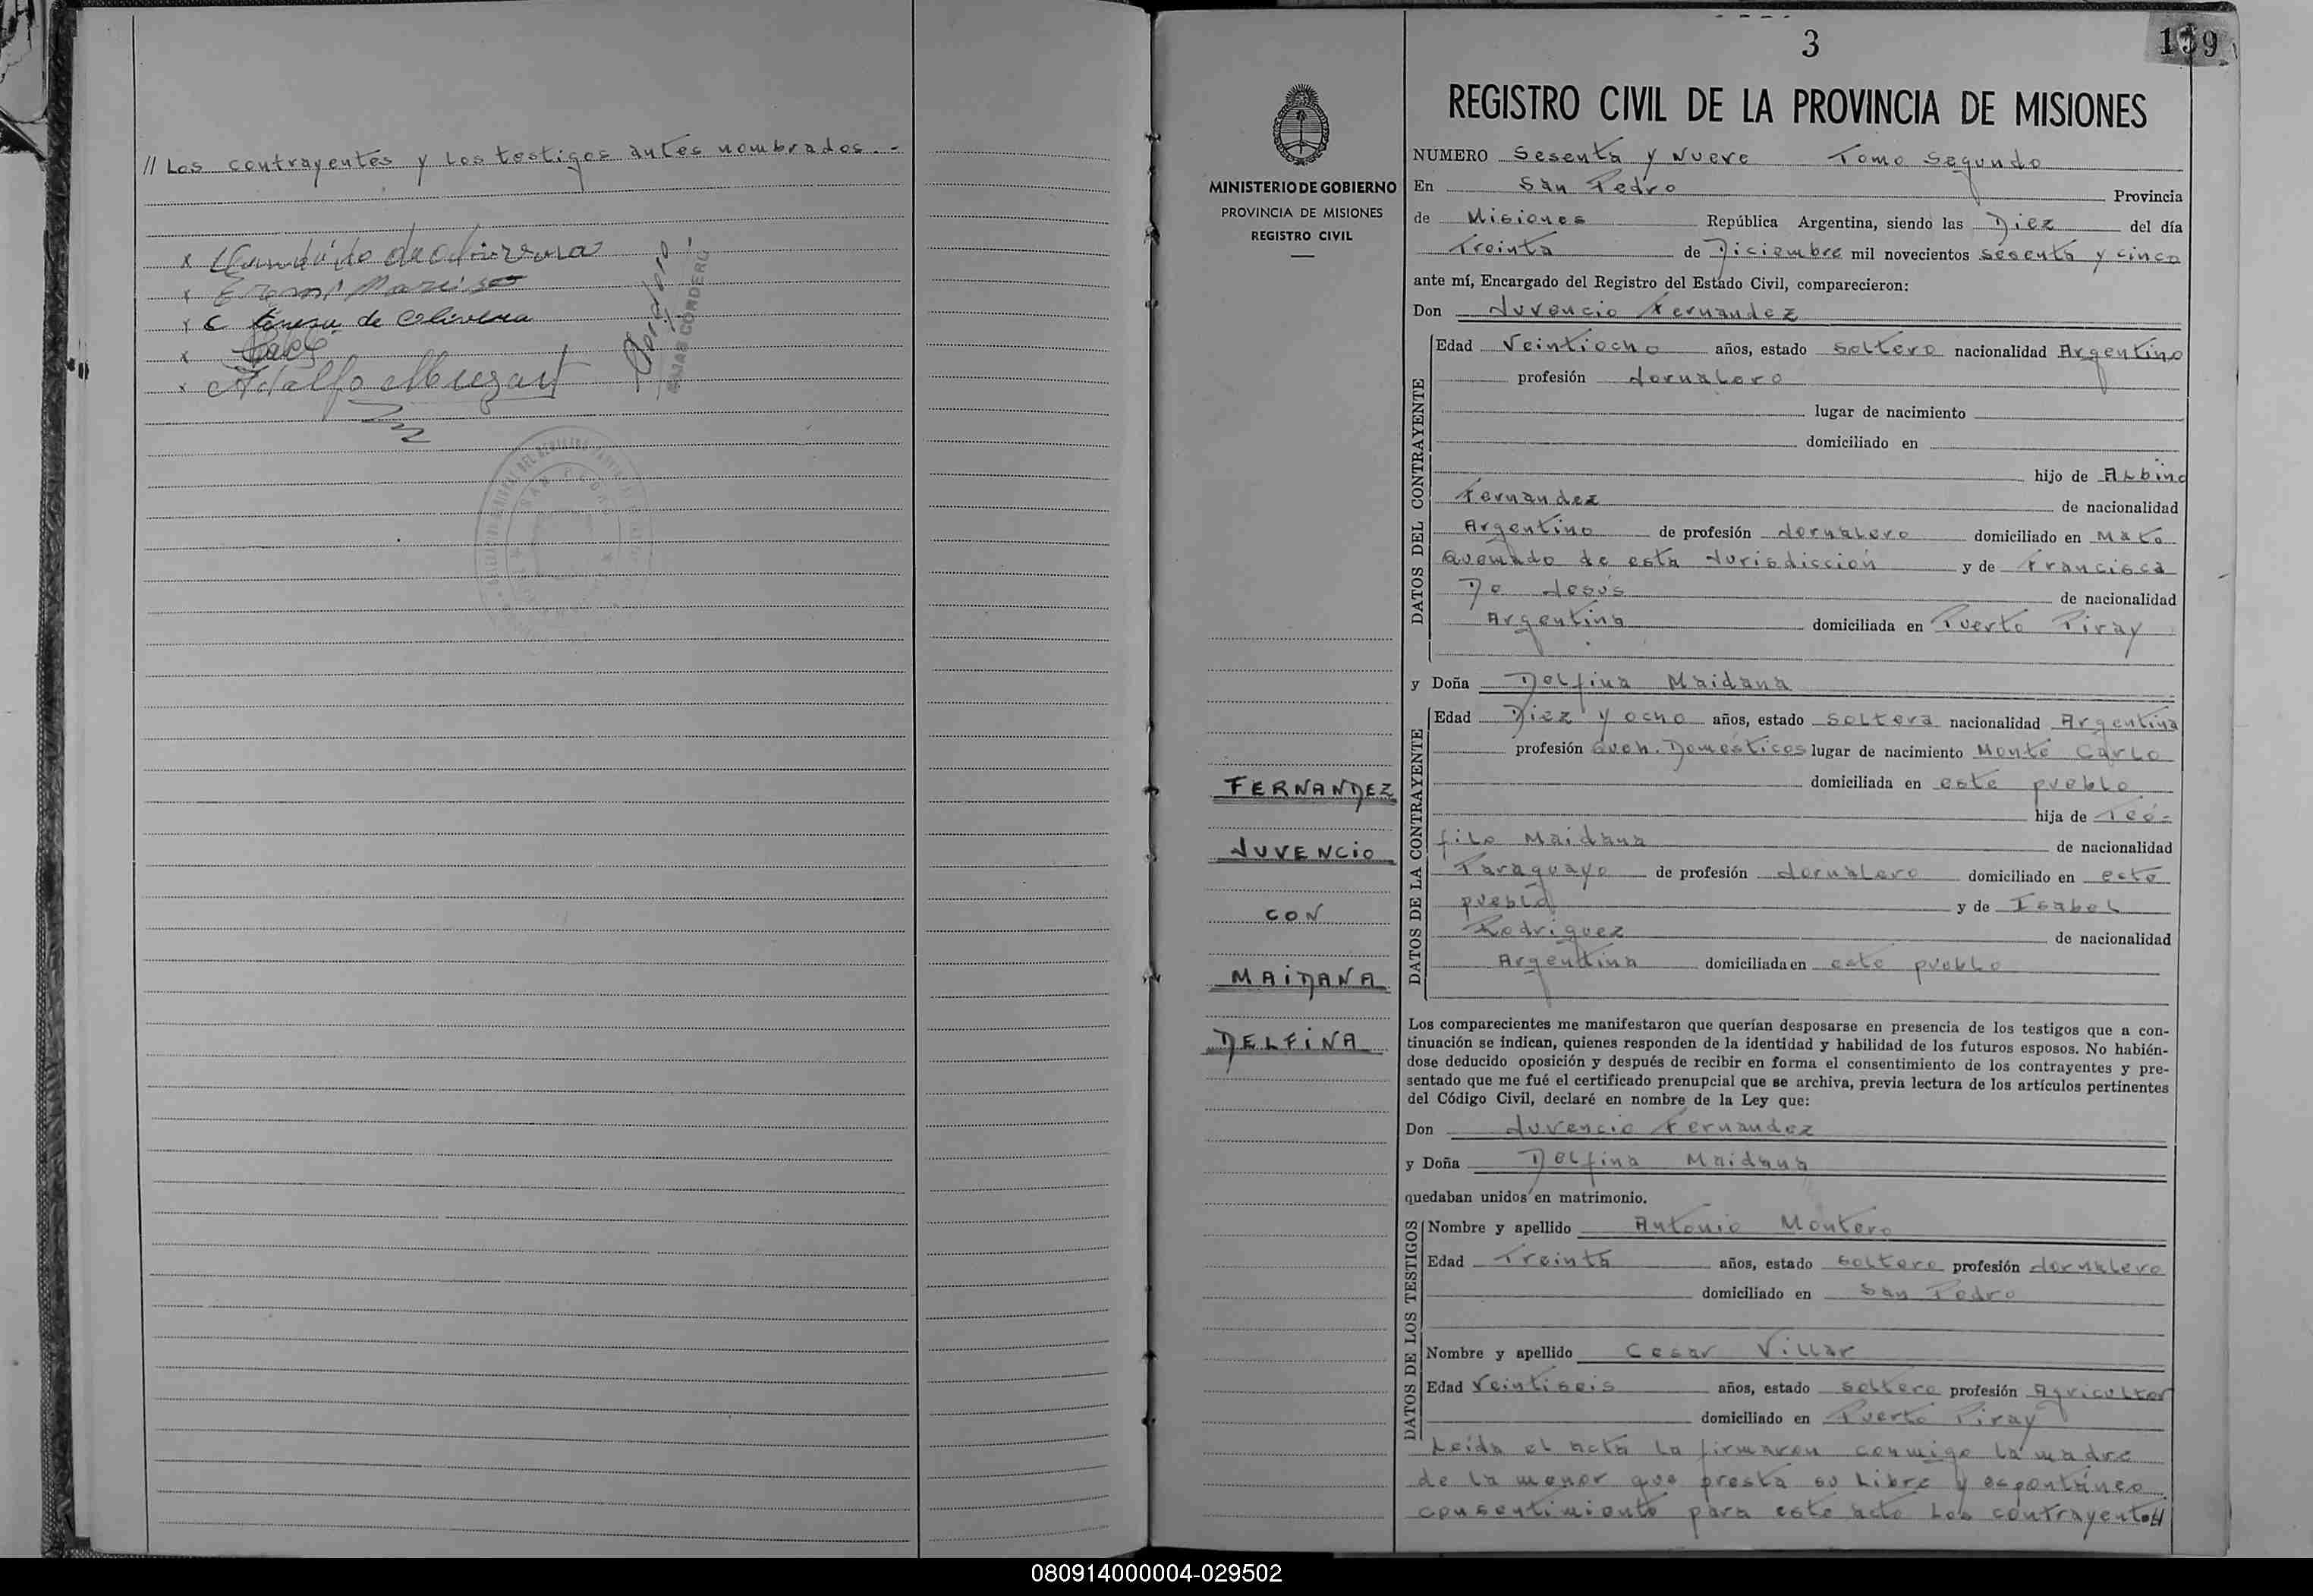 // Los contrayentes y los testigos antes nombrados.-
x
x
x de Olivera
x
x Adolfo
3
159
REGISTRO CIVIL DE LA PROVINCIA DE MISIONES
MINISTERIO DE GOBIERNO
PROVINCIA DE MISIONES
REGISTRO CIVIL
NUMERO Sesenta y Nueve Tomo Segundo
En San Pedro Provincia
de Misiones República Argentina, siendo las Diez del día
Treinta de Diciembre mil novecientos sesenta y cinco
ante mí, Encargado del Registro del Estado Civil, comparecieron:
Don Juvencio Fernandez
DATOS DEL CONTRAYENTE
Edad Veintiocho años, estado soltero nacionalidad Argentino
profesión Jornalero
lugar de nacimiento
domiciliado en
hijo de Albino
Fernandez de nacionalidad
Argentino de profesión Jornalero domiciliado en Mato
Quemado de esta Jurisdicción y de Francisca
De Jesús de nacionalidad
Argentina domiciliada en Puerto Piray
y Doña Delfina Maidana
DATOS DE LA CONTRAYENTE
Edad Diez y ocho años, estado soltera nacionalidad Argentina
profesión Queh. Domésticos lugar de nacimiento Monte Carlo
domiciliada en este pueblo
hija de Teó-
filo Maidana de nacionalidad
Paraguayo de profesión Jornalero domiciliado en este
pueblo y de Isabel
Rodriguez de nacionalidad
Argentina domiciliada en este pueblo
FERNANDEZ
JUVENCIO
CON
MAIDANA
DELFINA
Los comparecientes me manifestaron que querían desposarse en presencia de los testigos que a con-
tinuación se indican, quienes responden de la identidad y habilidad de los futuros esposos. No habién-
dose deducido oposición y después de recibir en forma el consentimiento de los contrayentes y pre-
sentado que me fué el certificado prenupcial que se archiva, previa lectura de los artículos pertinentes
del Código Civil, declaré en nombre de la Ley que:
Don Juvencio Fernandez
y Doña Delfina Maidana
quedaban unidos en matrimonio.
DATOS DE LOS TESTIGOS
Nombre y apellido Antonio Montero
Edad Treinta años, estado soltero profesión Jornalero
domiciliado en San Pedro
Nombre y apellido Cesar Villar
Edad Veintiseis años, estado soltero profesión Agricultor
domiciliado en Puerto Piray
Leída el acta la firmaron conmigo la madre
de la menor que presta su libre y espontáneo
consentimiento para este acto Los contrayentes//
080914000004-029502